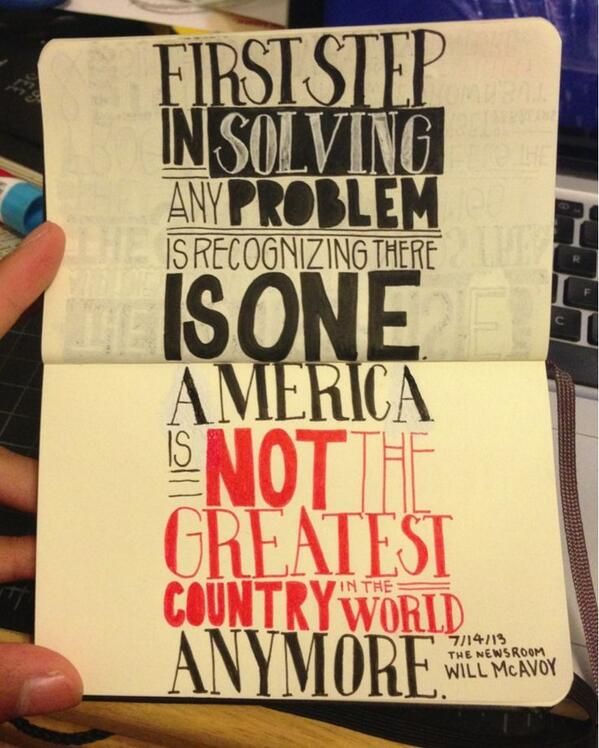 FIRST STEP
IN SOLVING
ANY PROBLEM
IS RECOGNIZING THERE
IS ONE.
AMERICA
IS NOT THE
GREATEST
COUNTRY IN THE WORLD
ANYMORE.
7/14/13
THE NEWSROOM
WILL McAVOY
R
F
C